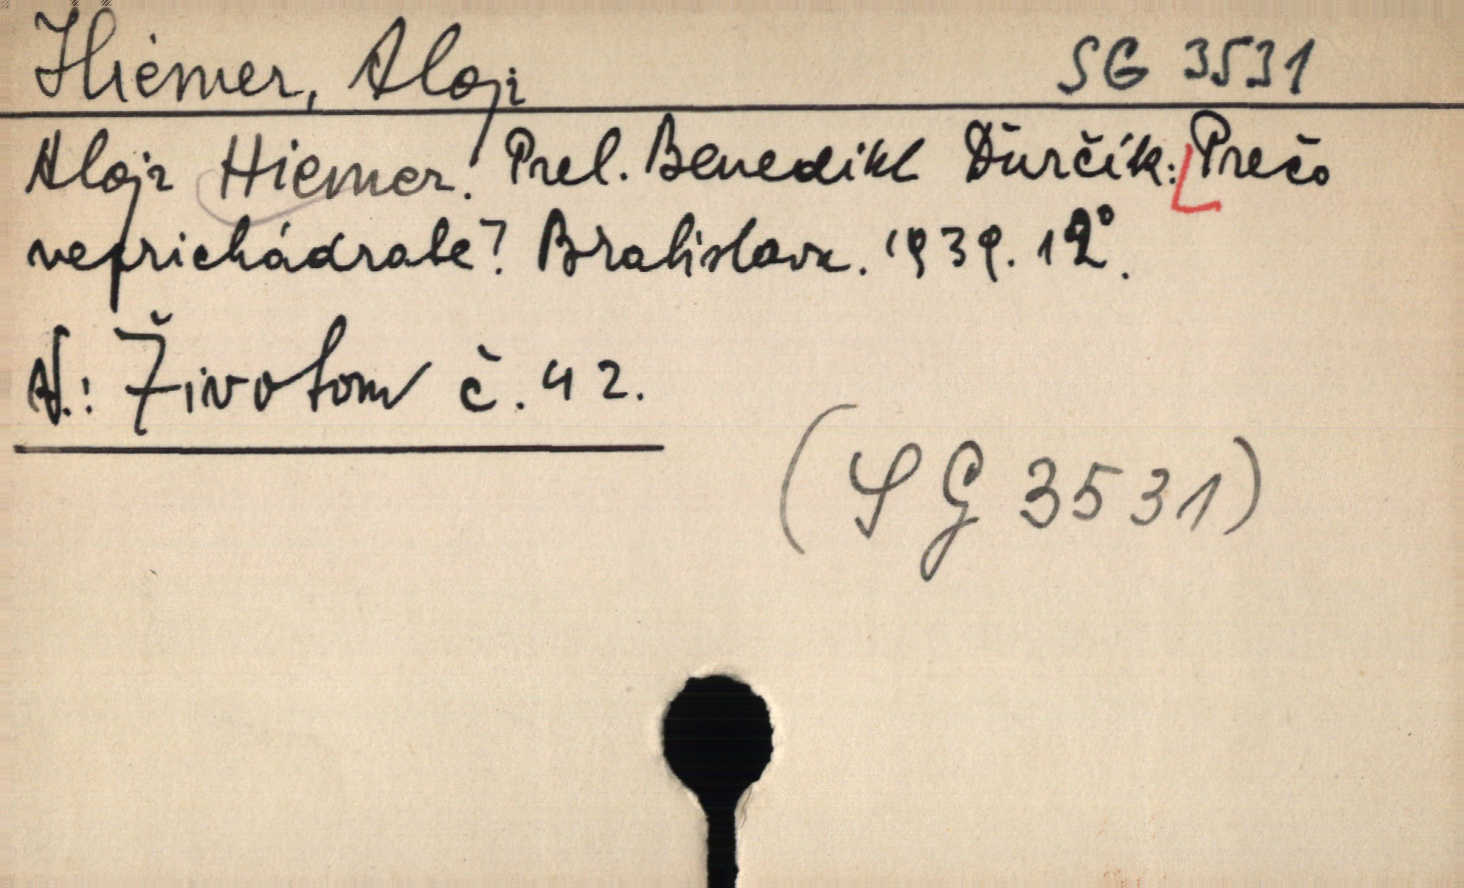 Hiemer, Alojz SG 3531
Alojz Hiemer. Prel. Benedikt Ďurčík: Prečo
neprichádzate? Bratislava. 1939. 12°.
N.: Životom č. 42.
(SG 3531)